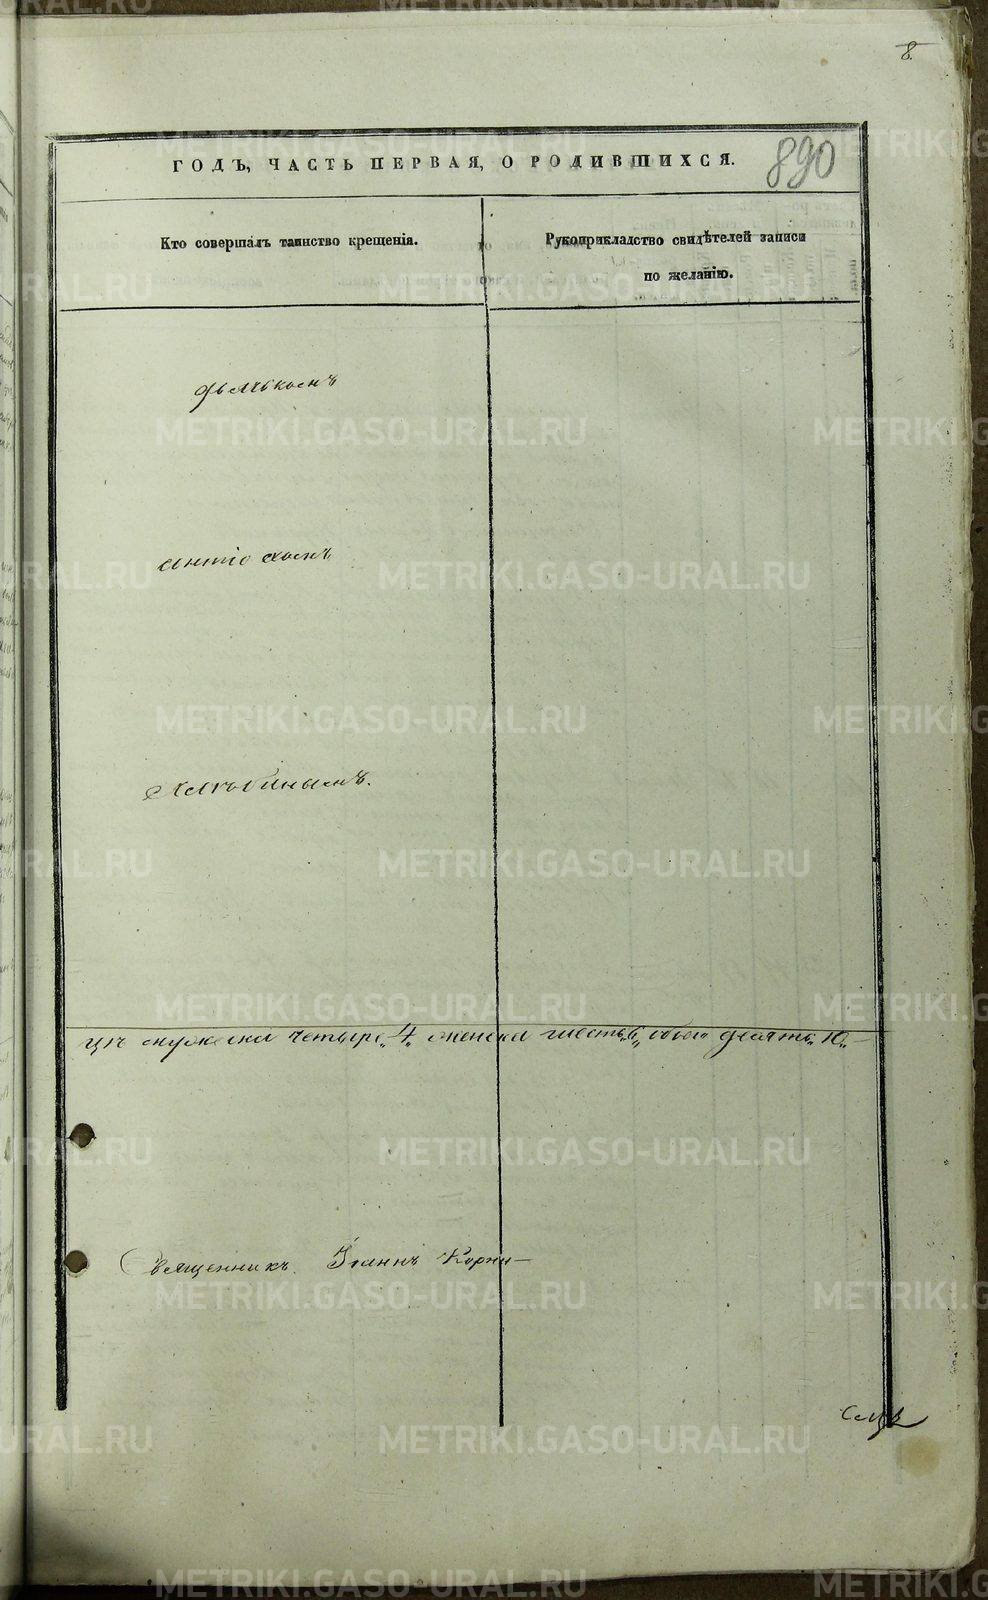 8.
ГОДЪ, ЧАСТЬ ПЕРВАЯ, О РОДИВШИХСЯ.
890
Кто совершалъ таинство крещенія.
Рукоприкладство свидѣтелей записи
по желанію.
дьячькомъ
мужеска четыре „4„ женска шесть „6„ обоего десять „10„
Священникъ Іоаннъ
METRIKI.GASO-URAL.RU